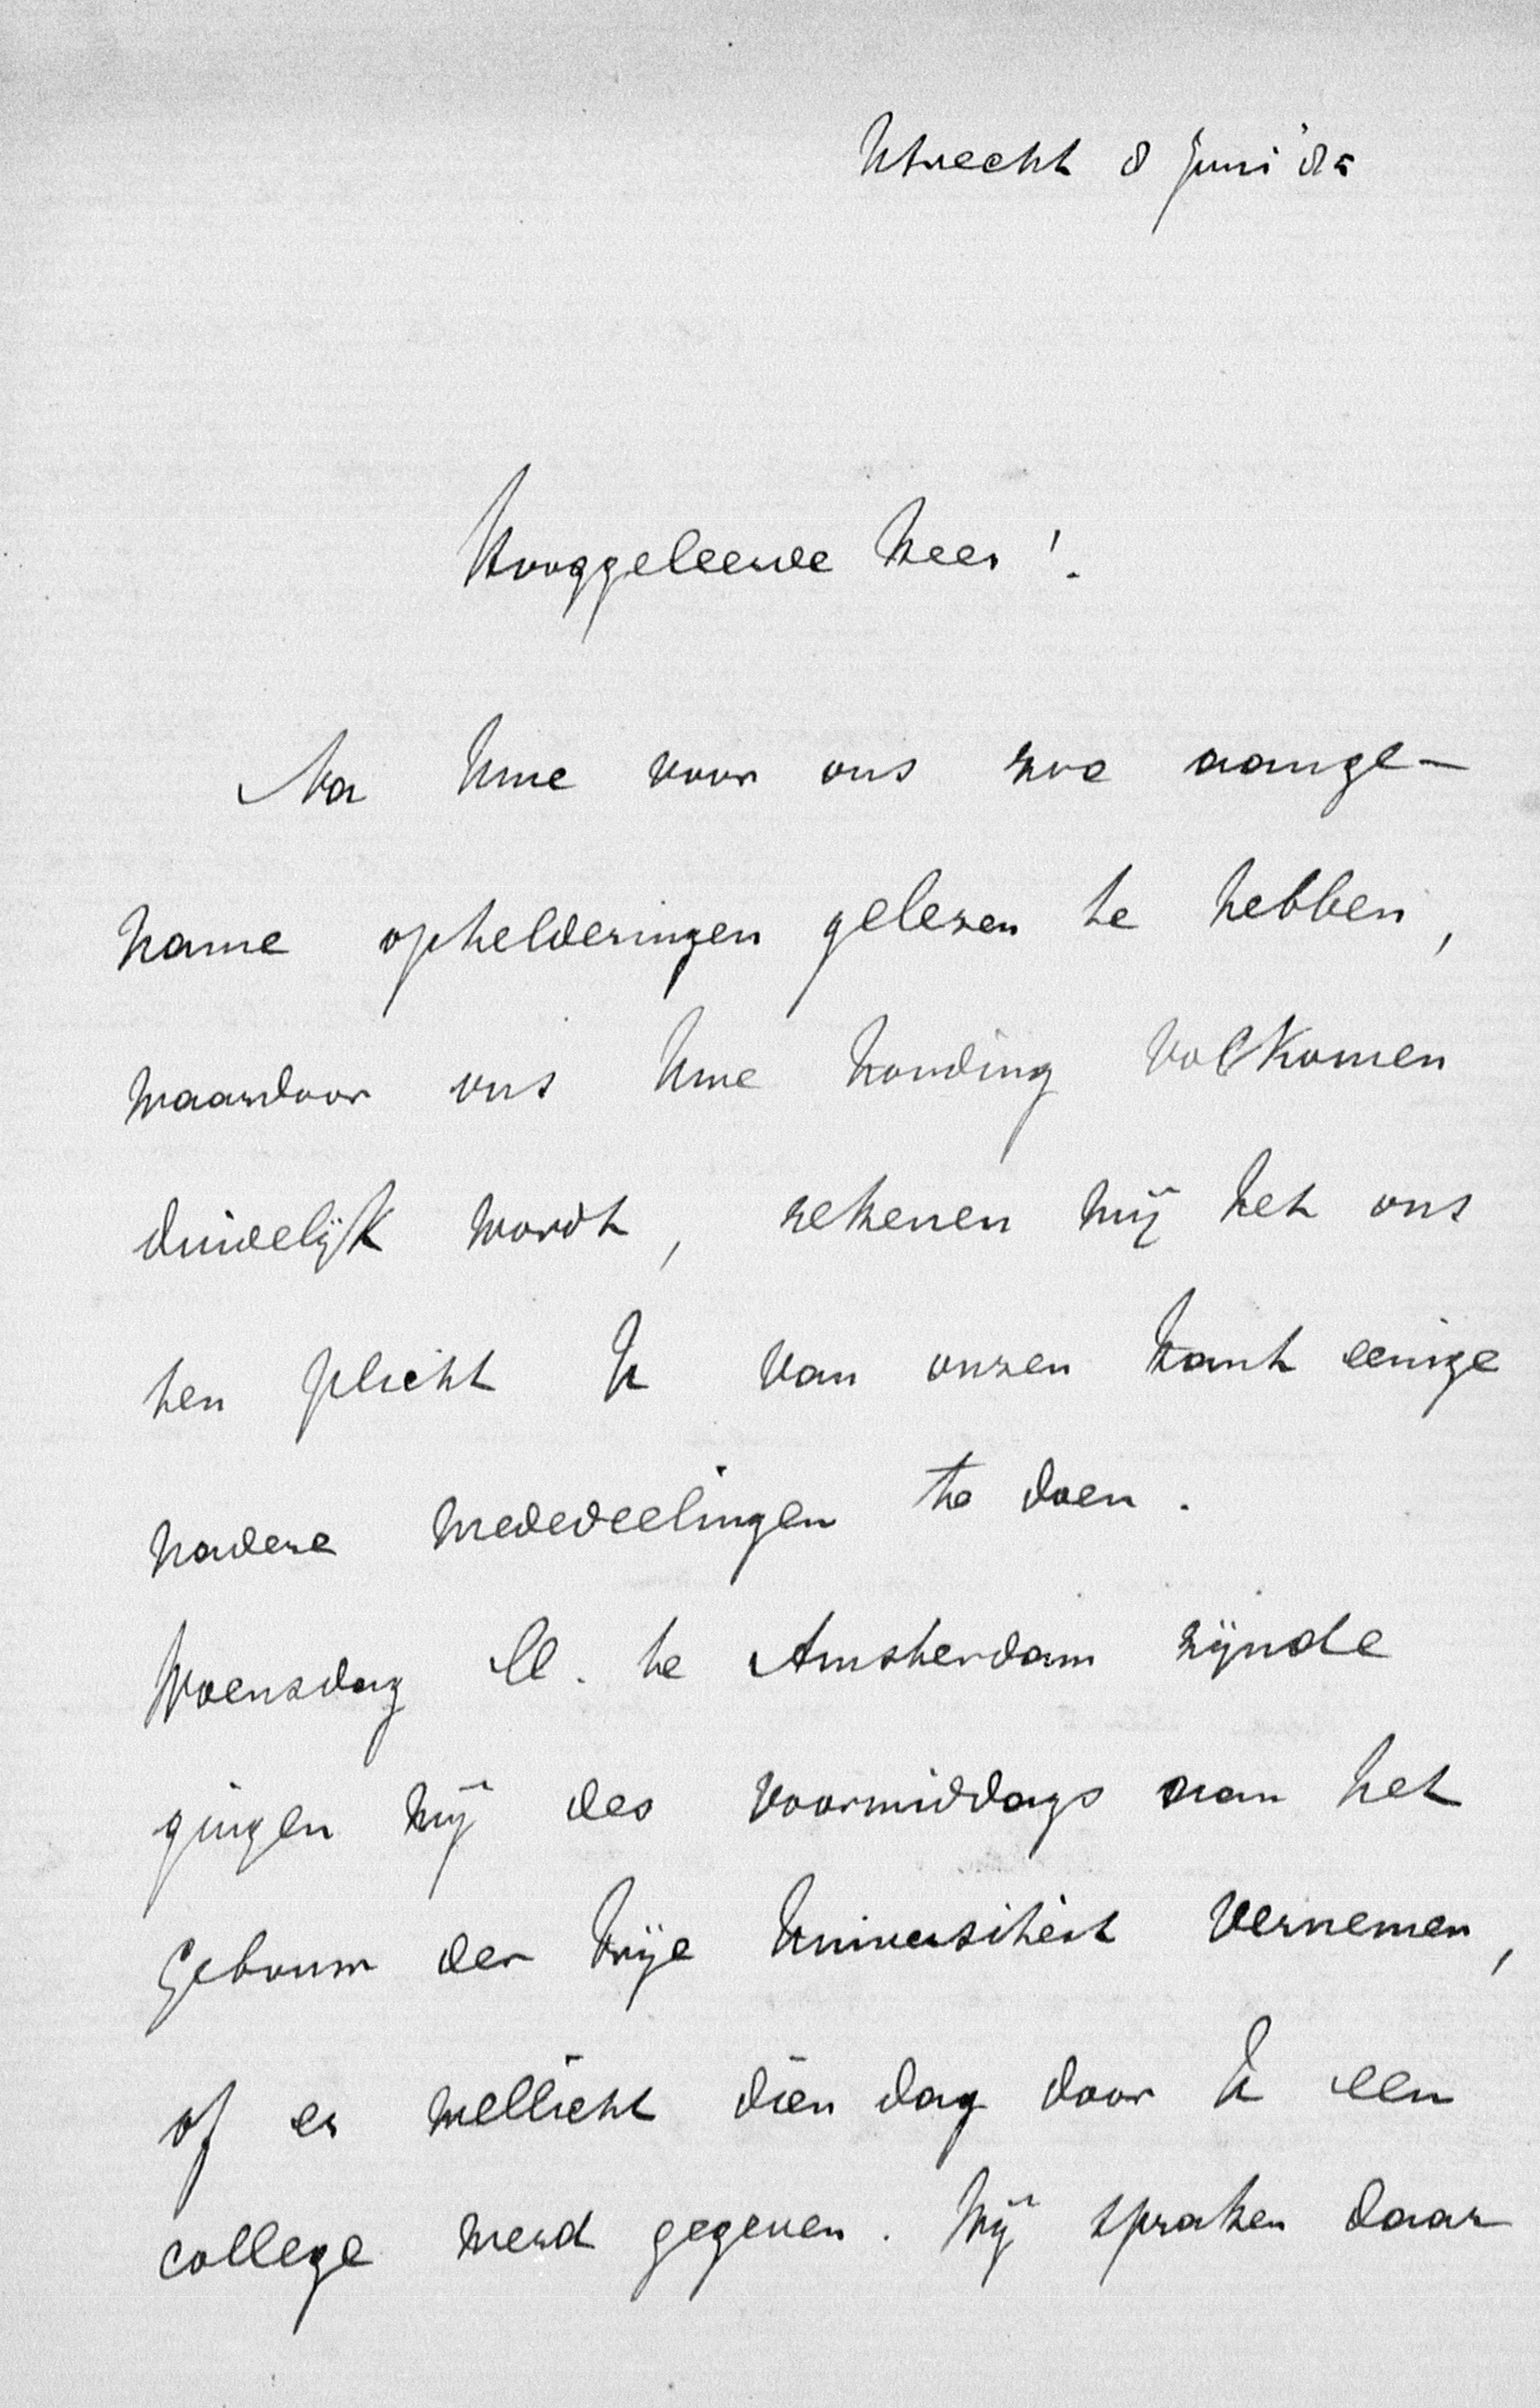 Utrecht 8 juni '85
Hooggeleerde Heer!
Na Uwe voor ons zoo aange-
name ophelderingen gelezen te hebben,
waardoor ons Uwe houding volkomen
duidelijk wordt, rekenen wij het ons
ten plicht U van onzen kant eenige
nadere mededeelingen te doen.
Woensdag ll. te Amsterdam zijnde
gingen wij des voormiddags aan het
Gebouw der Vrije Universiteit vernemen,
of er wellicht dien dag door U een
college werd gegeven. Wij spraken daar